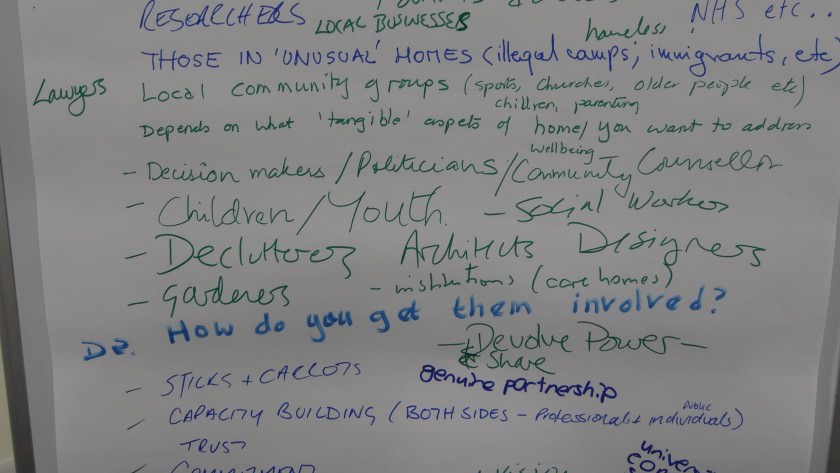 RESEARCHERS LOCAL BUSINESSES NHS etc..
homeless
THOSE IN 'UNUSUAL' HOMES (illegal camps, immigrants, etc)
Lawyers
Local community groups (sports, churches, older people etc)
children, parenting
Depends on what 'tangible' aspets of home/ you want to address
wellbeing
- Decision makers / Politicians / Community Counsellor
- Children / Youth - Social Workers
- Declutterers Architects Designers
- gardeners - institutions (care homes)
D2. How do you get them involved?
- Devolve Power -
& Share
- STICKS + CARROTS genuine partnership
- CAPACITY BUILDING (BOTH SIDES - Professionals + individuals)
public
TRUST